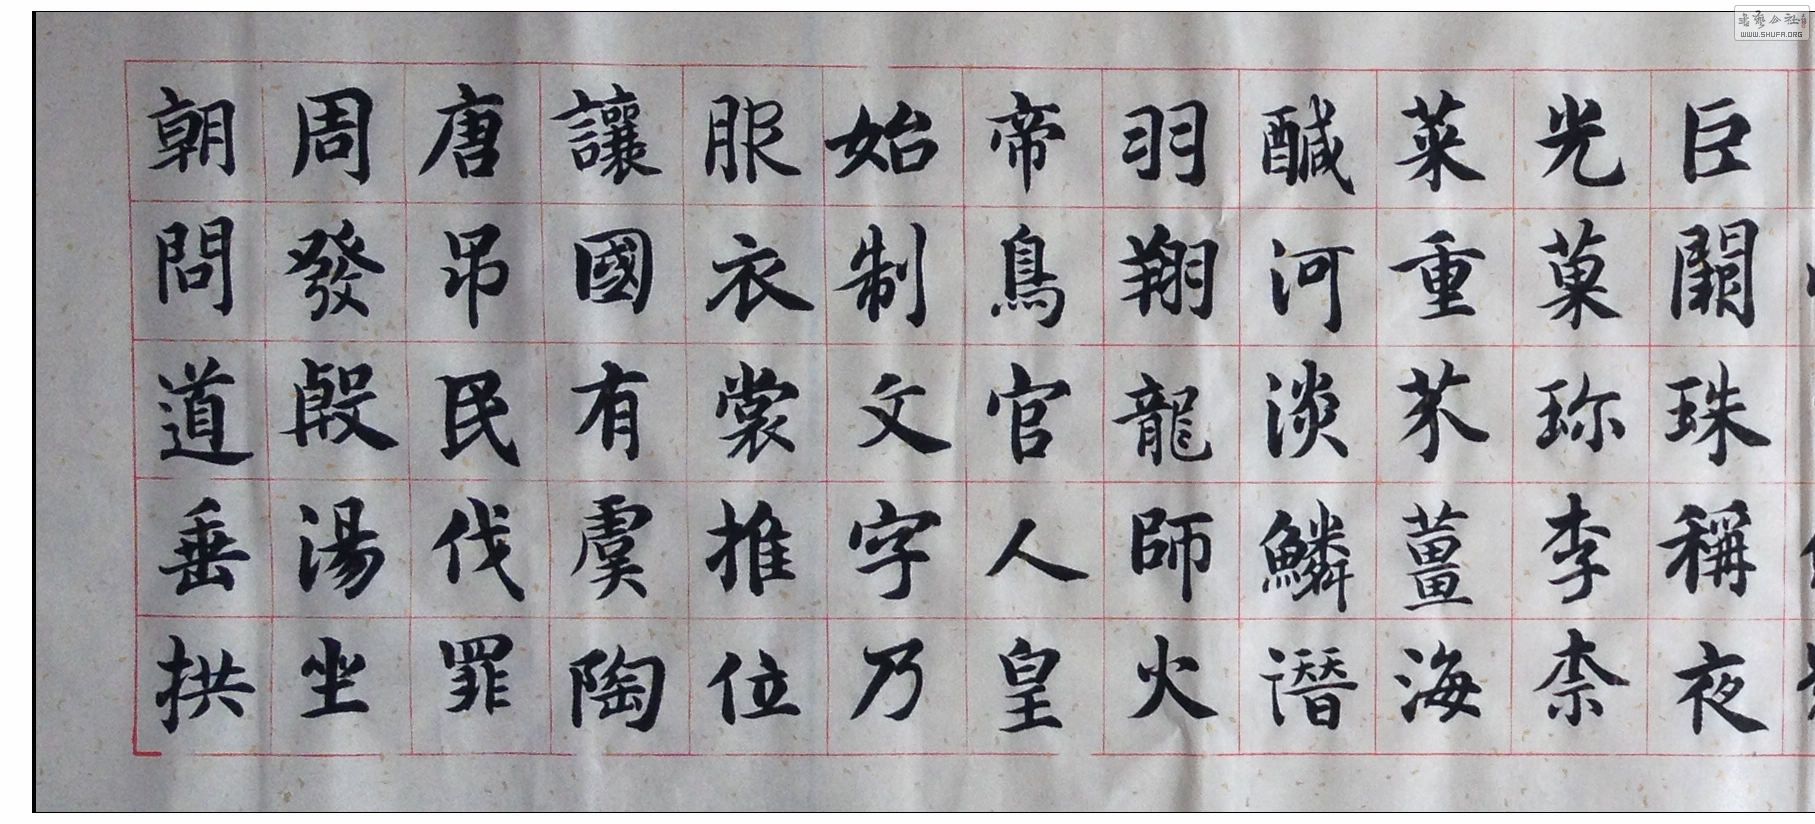 巨闕珠稱夜
光菓珎李柰
菜重芥薑海
醎河淡鱗潛
羽翔龍師火
帝鳥官人皇
始制文字乃
服衣裳推位
讓國有虞陶
唐吊民伐罪
周發殷湯坐
朝問道垂拱
WWW.SHUFA.ORG